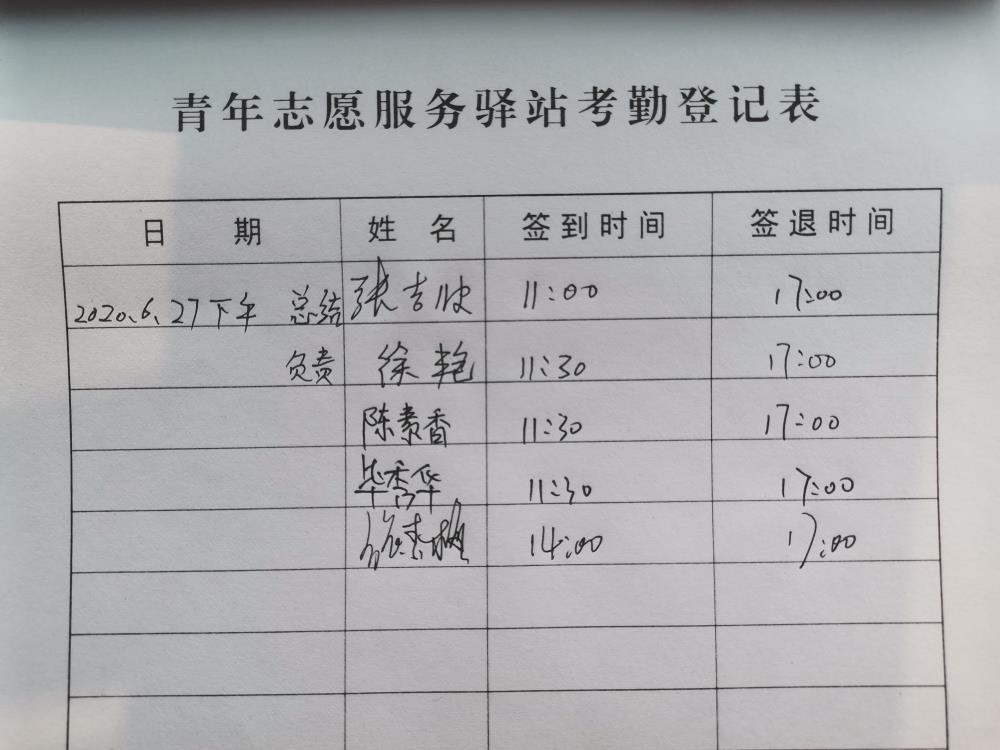 青年志愿服务驿站考勤登记表
日 期 姓 名 签到时间 签退时间
2020.6.27下午 总结 张吉 11:00 17:00
负责 徐艳 11:30 17:00
陈素香 11:30 17:00
毕秀华 11:30 17:00
14:00 17:00